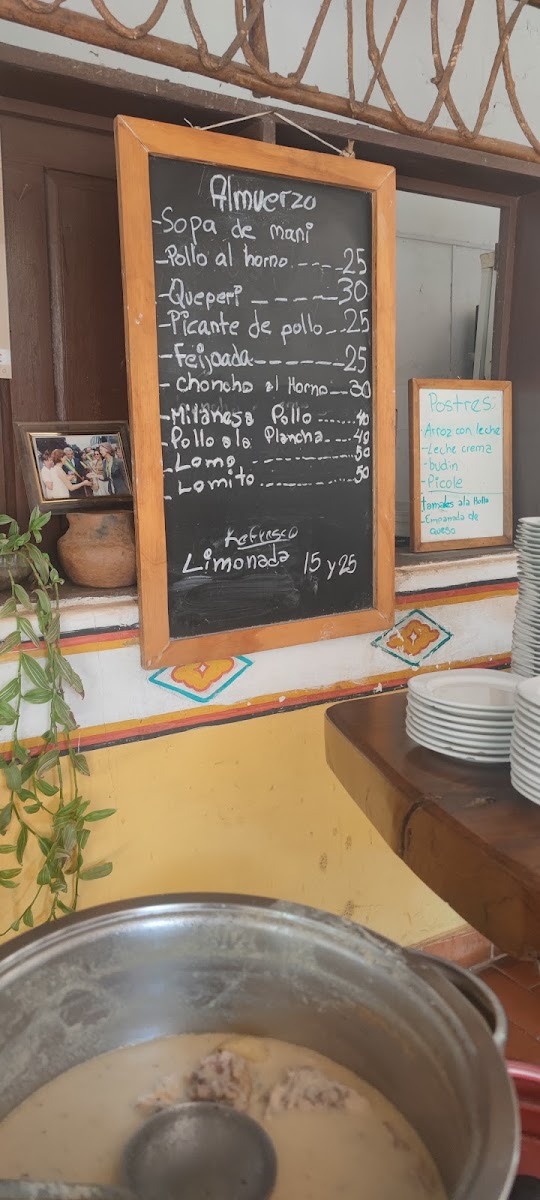 Almuerzo
-Sopa de mani
-Pollo al horno ----25
-Queperi ------30
-Picante de pollo --25
-Feijoada------25
-Choncho al Horno--30
-Milanesa Pollo ......40
-Pollo a la Plancha....40
-Lomo ............50
-Lomito ..........50
Refresco
Limonada 15 y 25
Postres
-Arroz con leche
-Leche crema
-budin
-Picole
tamales a la Holla
-Empanada de
queso